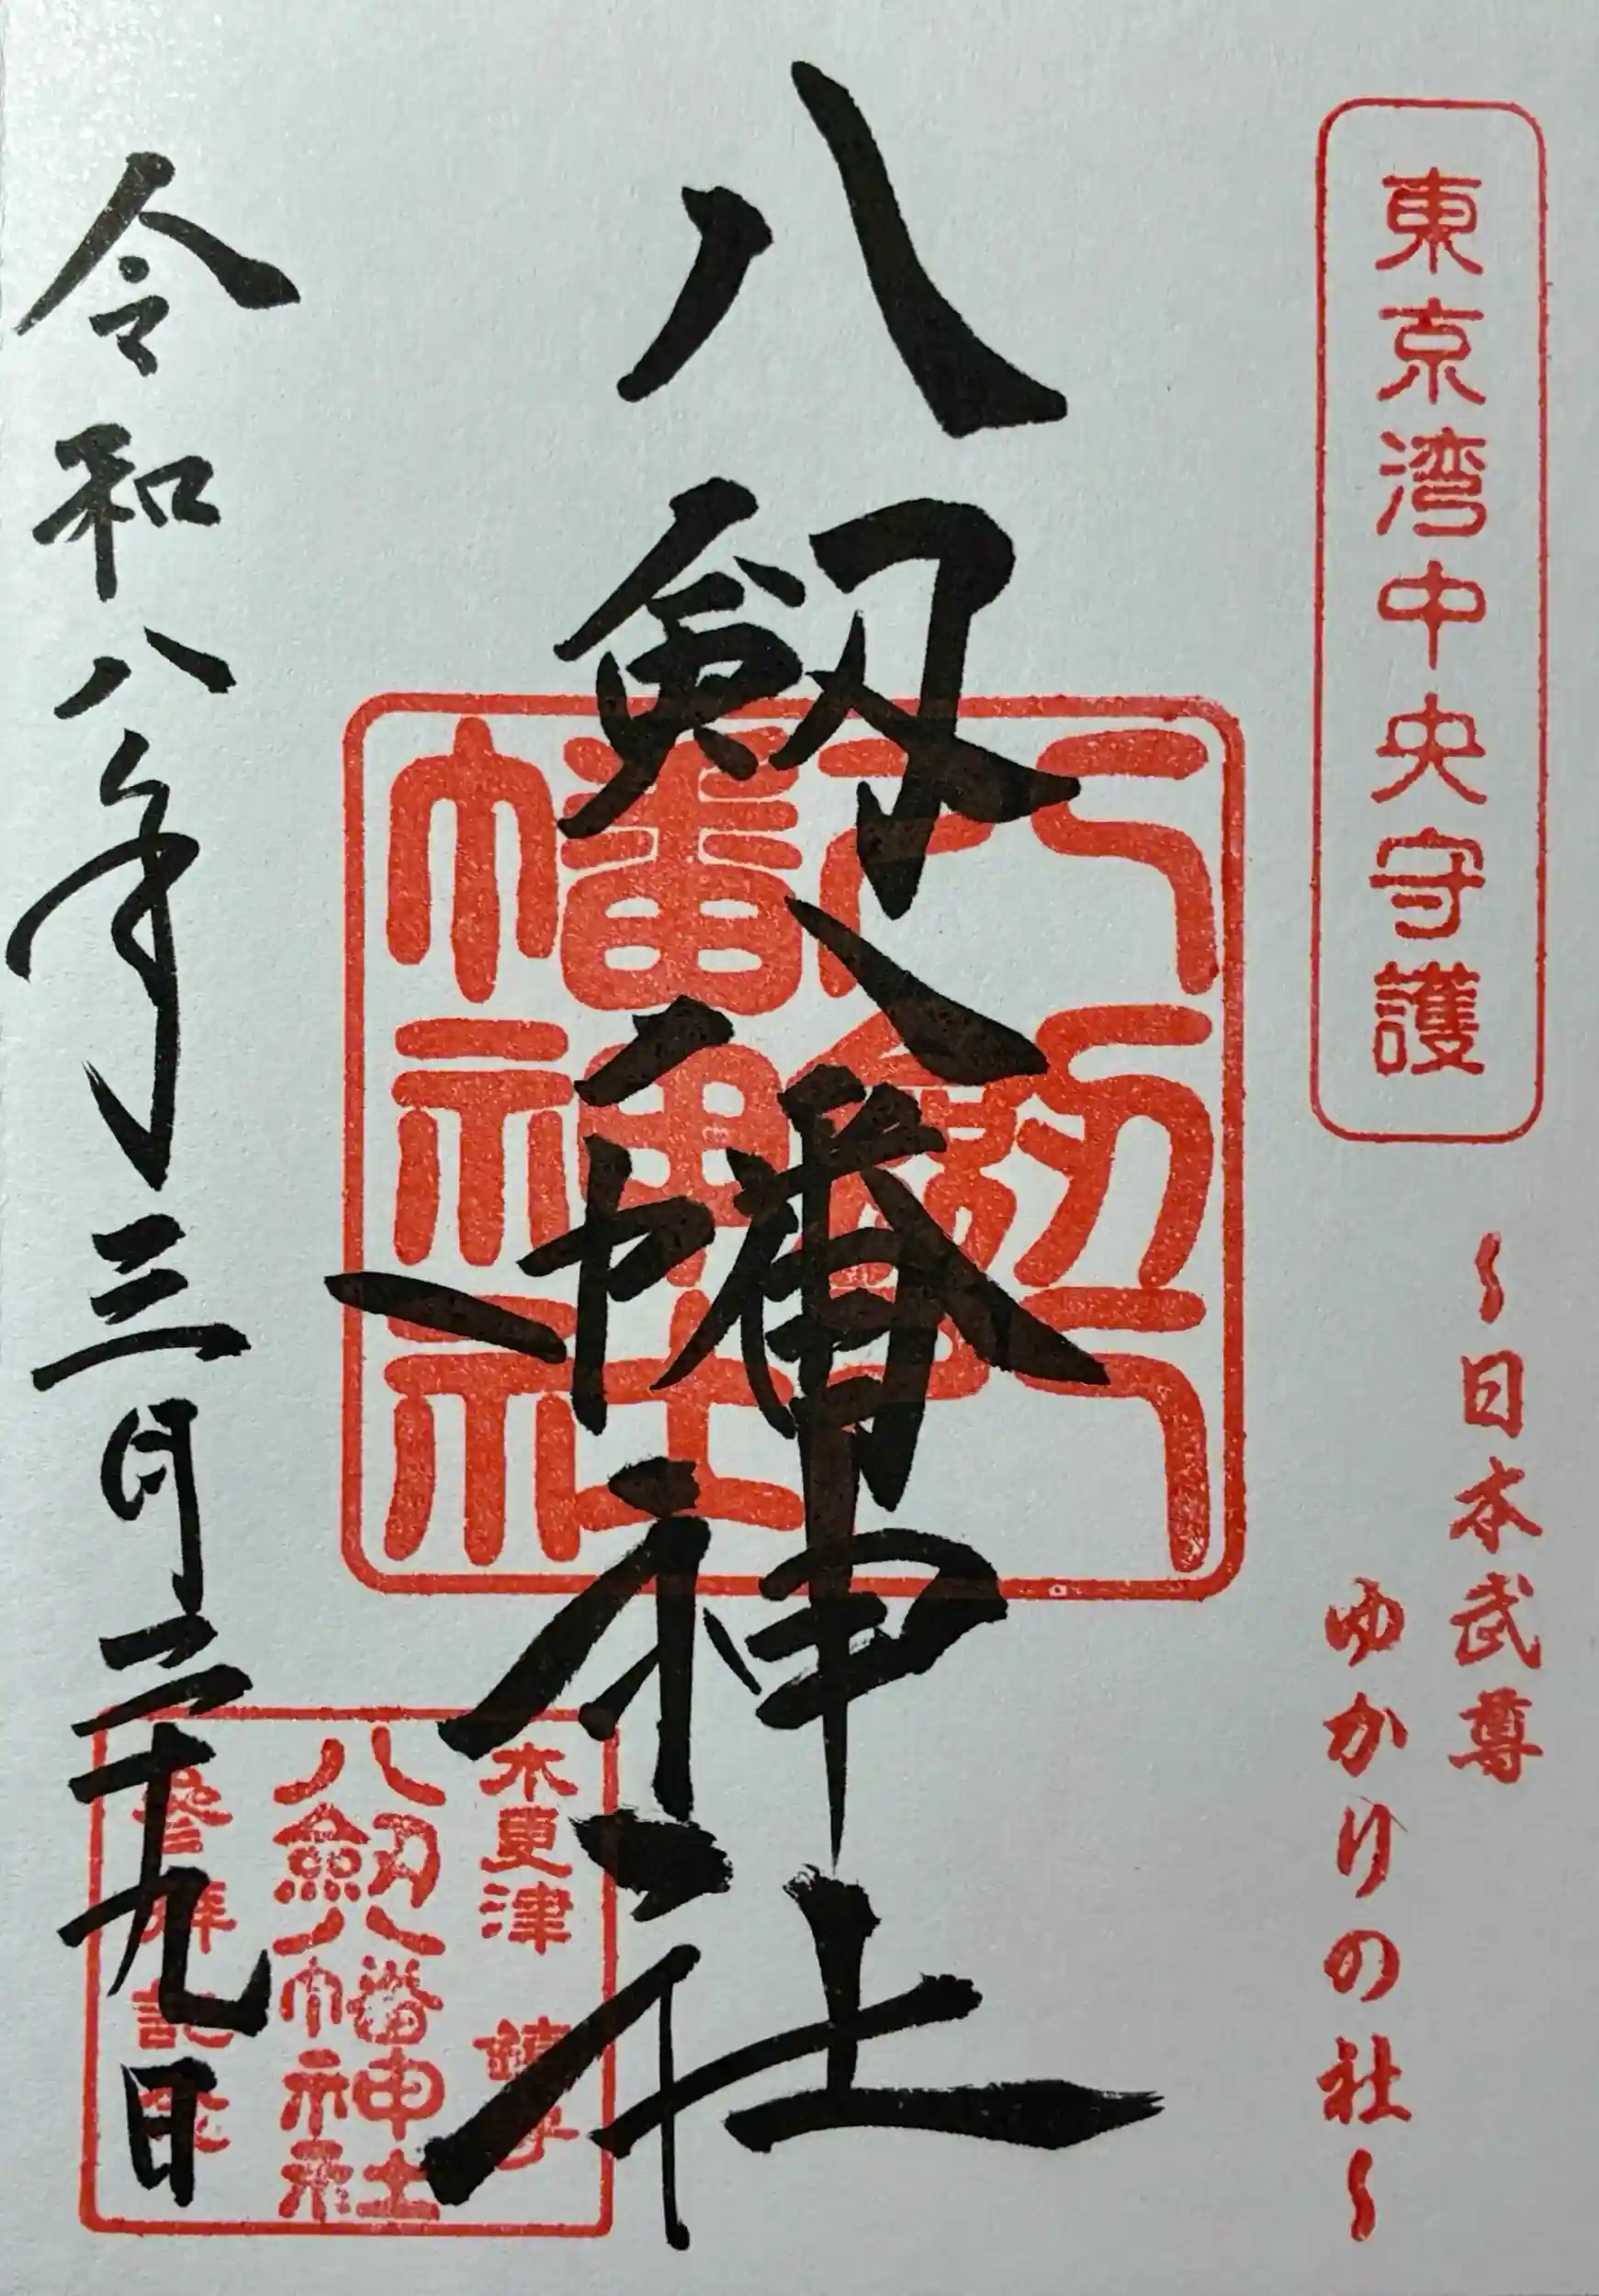 東京湾中央守護
～日本武尊
ゆかりの社～
八剱八幡神社
八剱八幡神社
木更津 鎮守
八剱八幡神社
参拝記念
令和八年三月二十九日